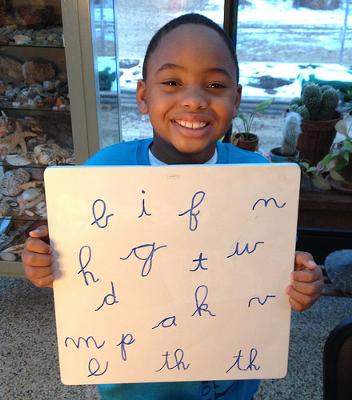 b i f n
h g t w
d a k v
m p
e th th